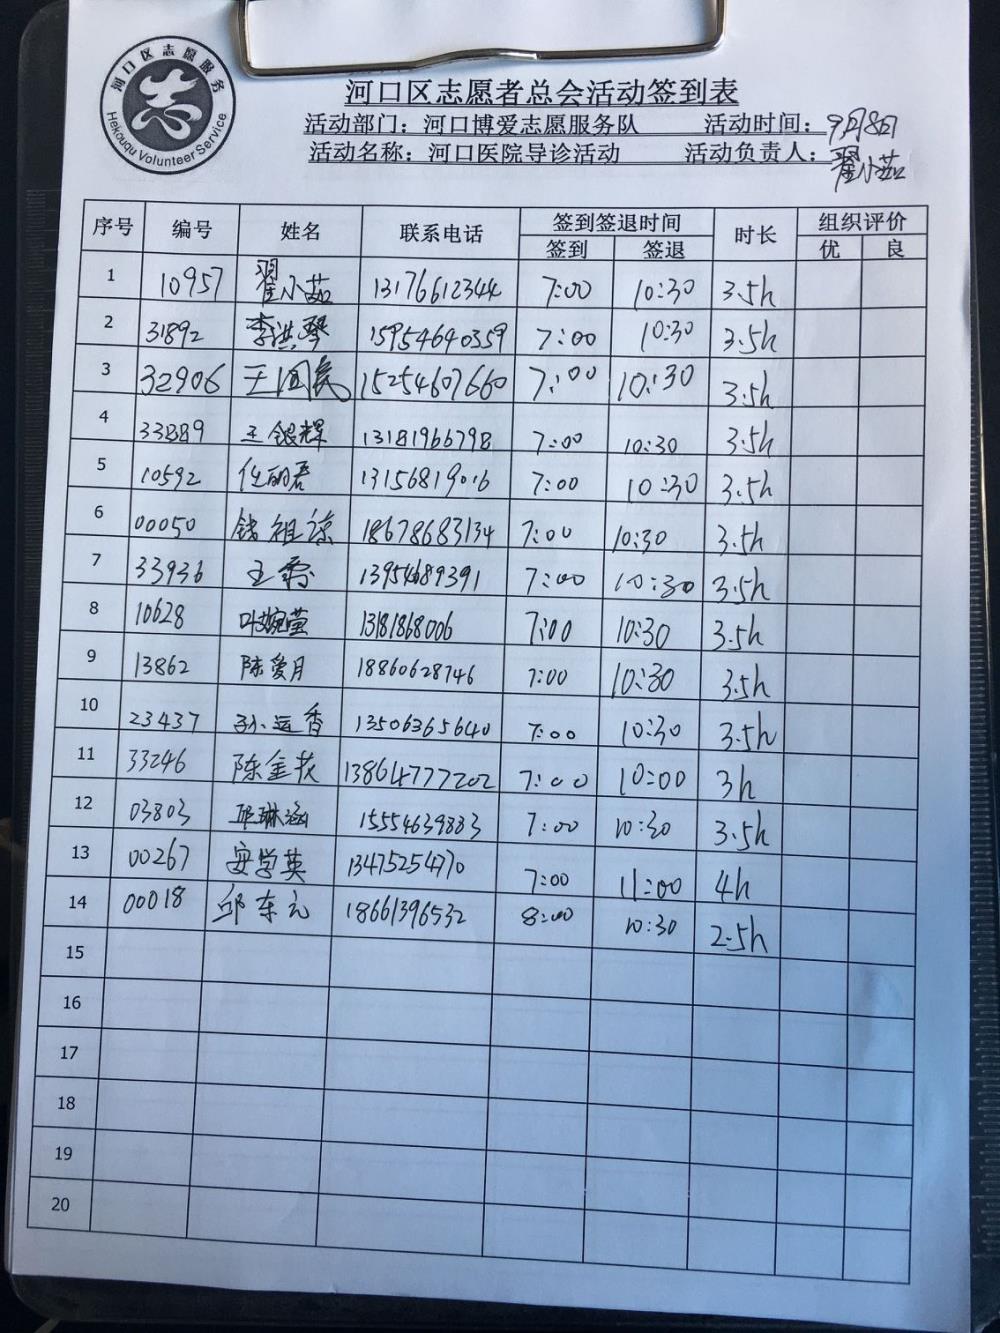 河口区志愿服务
Hekouqu Volunteer Service
河口区志愿者总会活动签到表
活动部门：河口博爱志愿服务队 活动时间：9月8日
活动名称：河口医院导诊活动 活动负责人：翟小茹
序号 编号 姓名 联系电话 签到签退时间 时长 组织评价
签到 签退 优 良
1 10957 翟小茹 13176612344 7:00 10:30 3.5h
2 31892 李洪琴 15954640359 7:00 10:30 3.5h
3 32906 王国民 15254607660 7:00 10:30 3.5h
4 33889 王银辉 13181966798 7:00 10:30 3.5h
5 10592 任丽君 13156819016 7:00 10:30 3.5h
6 00050 钱祖谅 18678683134 7:00 10:30 3.5h
7 33936 王霞 13954689391 7:00 10:30 3.5h
8 10628 叶婉莹 13181868006 7:00 10:30 3.5h
9 13862 陈爱月 18860628746 7:00 10:30 3.5h
10 23437 孙运香 13506365640 7:00 10:30 3.5h
11 33246 陈金 13864777202 7:00 10:00 3h
12 03803 邱琳涵 15554639883 7:00 10:30 3.5h
13 00267 安学英 13475254770 7:00 11:00 4h
14 00018 邱东元 18661396532 8:00 10:30 2.5h
15
16
17
18
19
20